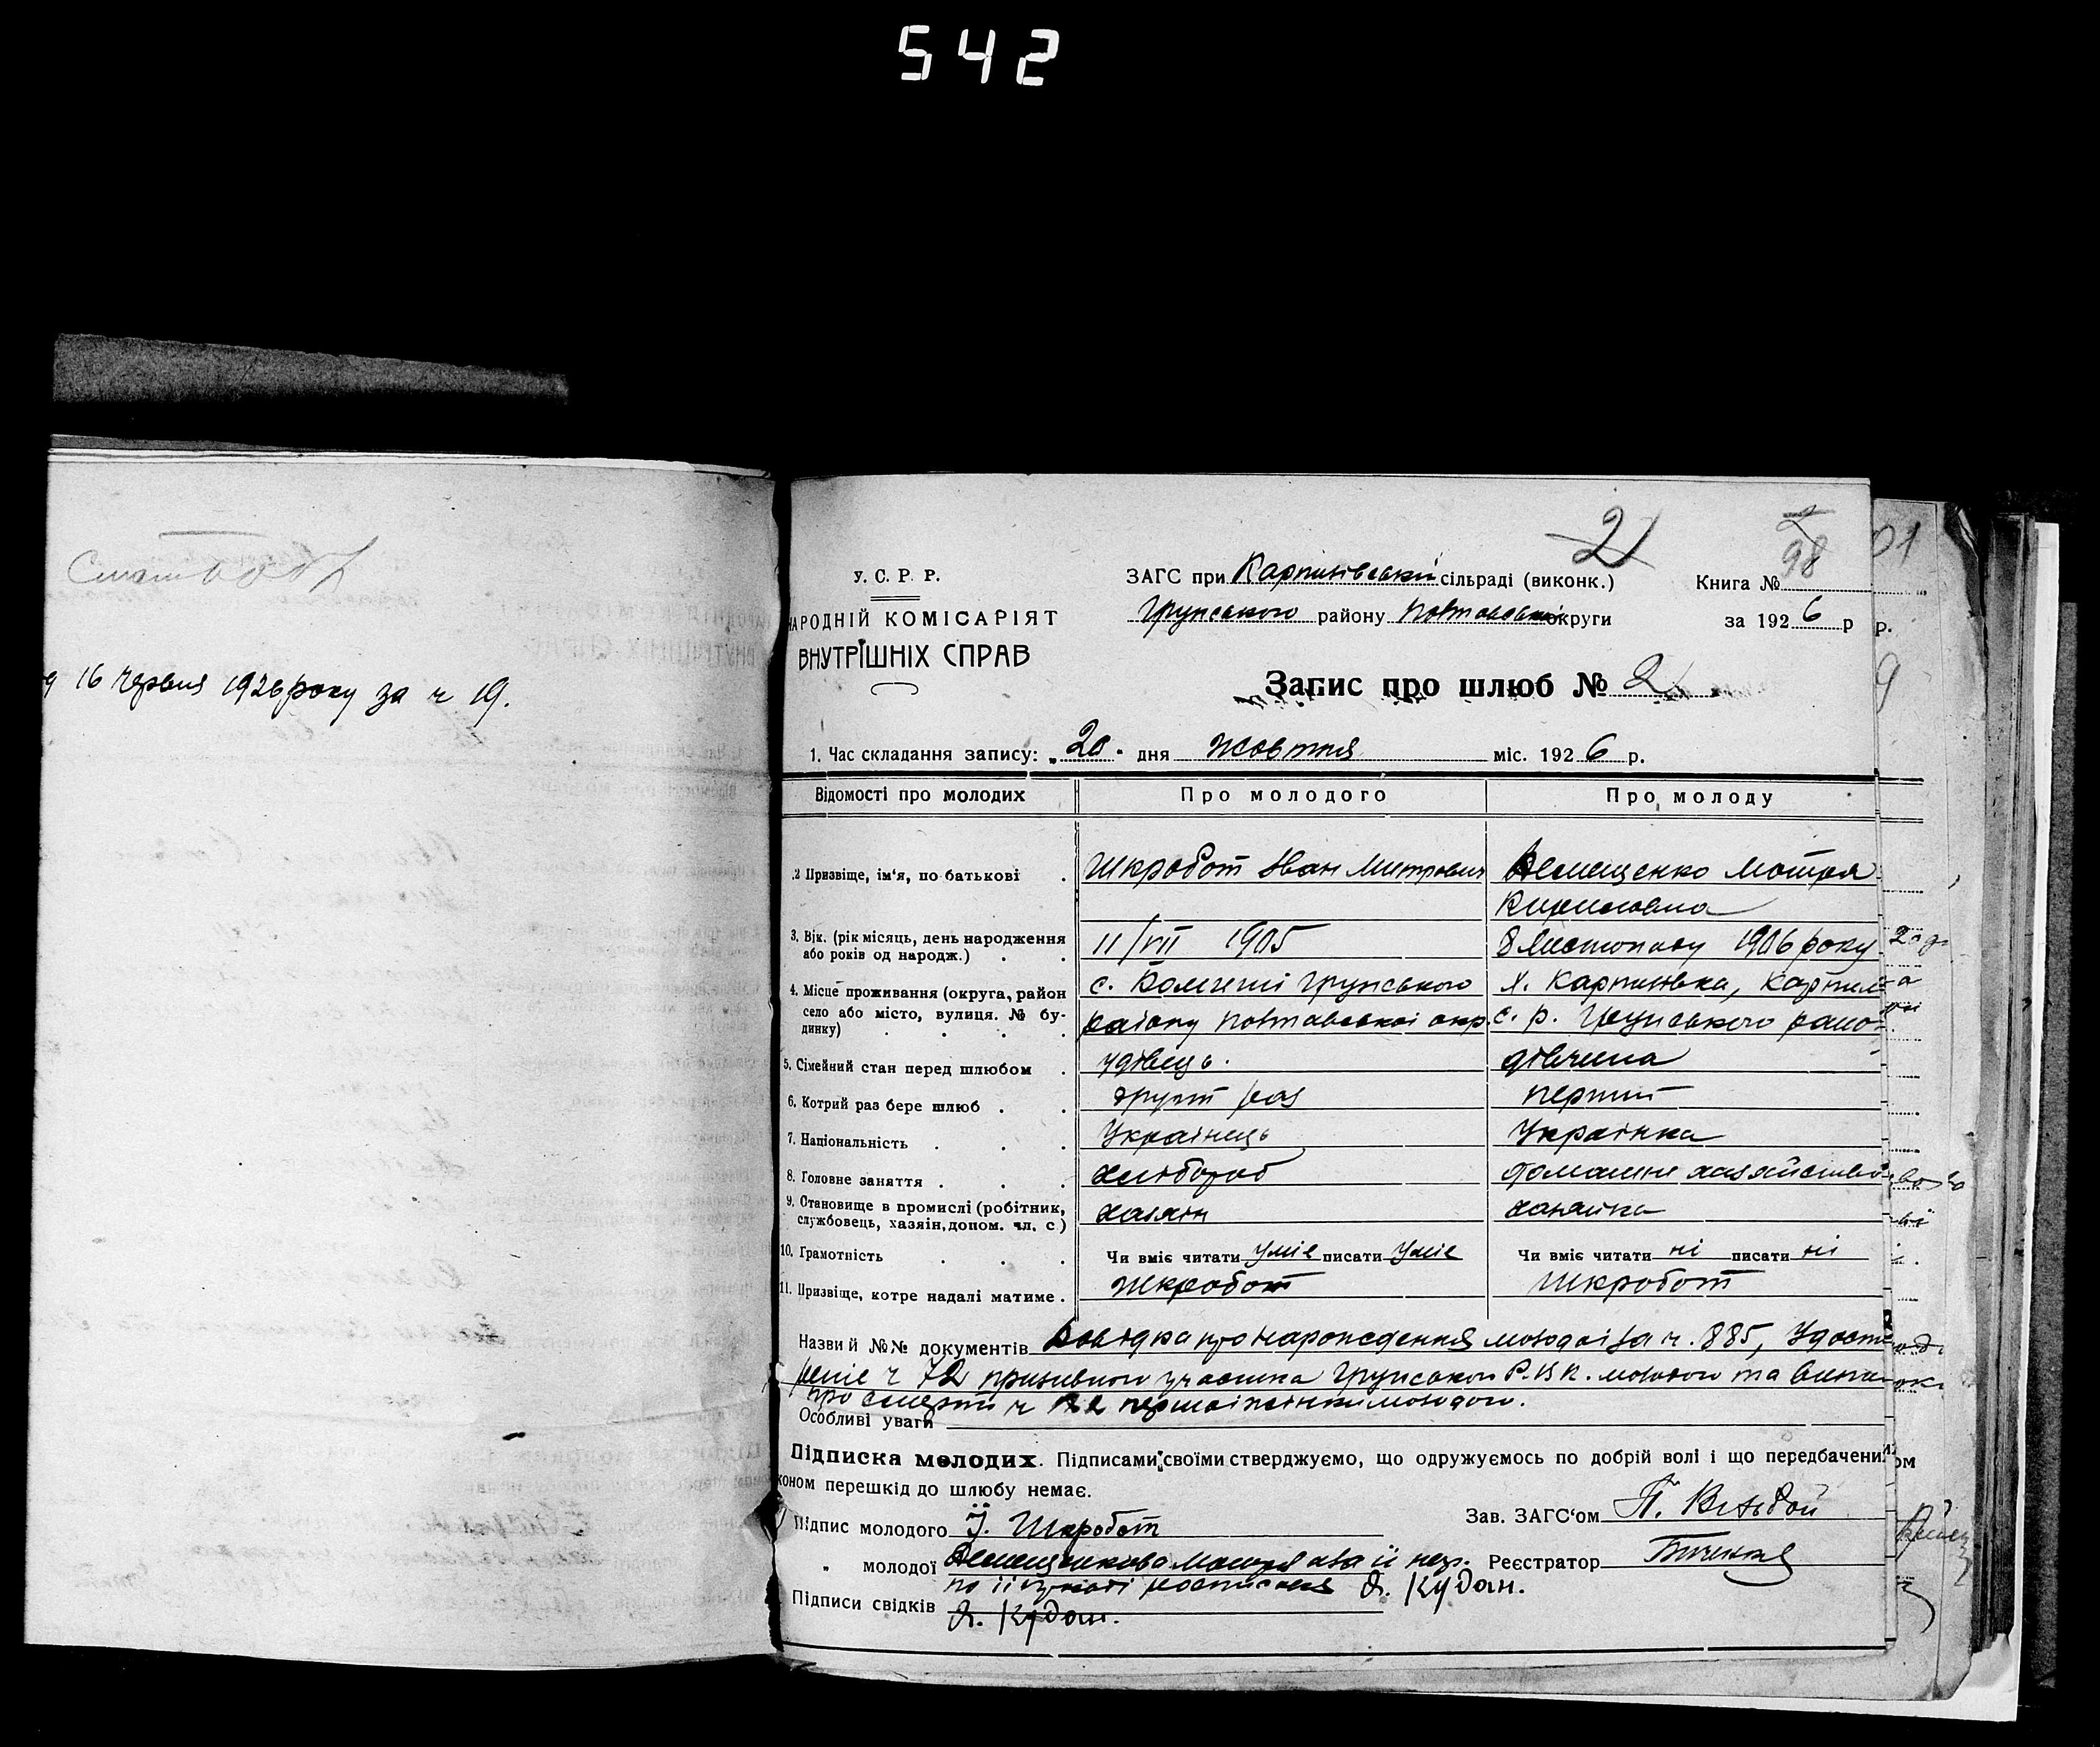 542
16 червня 1926 року за ч 19.
21
98
01
У. С. Р. Р.
ЗАГС при Карпилівській сільраді (виконк.)
Книга №
НАРОДНІЙ КОМІСАРІЯТ
Грунського району Полтавської округи
за 1926 р
р.
ВНУТРІШНІХ СПРАВ
Запис про шлюб № 2
9
1. Час складання запису: „20" дня Жовтня міс. 1926 р.
Відомості про молодих Про молодого Про молоду
2 Призвіще, ім'я, по батькові . Шкробот Іван Митрович Демещенко Мотря
Кириловна
3. Вік. (рік місяць, день народження 11/VII 1905 8 Листопаду 1906 року
або років од народж.) . .
4. Місце проживання (округа, район с. Грунського х. Карпилівка, Карпил
село або місто, вулиця. № бу- району Полтавської окр. с. р. Грунського райо
динку) . . .
5. Сімейний стан перед шлюбом . удівець. дівчина
6. Котрий раз бере шлюб . . другий раз перший
7. Національність . . . Українець Українка
8. Головне заняття . . . хлібороб домашнє хазяйство
9. Становище в промислі (робітник, хазяїн хазяйка
службовець, хазяїн, допом. чл. с.)
10. Грамотність . . . Чи вміє читати уміє писати уміє Чи вміє читати ні писати ні
11. Призвіще, котре надалі матиме . Шкробот Шкробот
Назви й №№ документів Довідка про народження молодої за ч. 885, Удосто
реніє ч 72 призивного участка Грунського Р.В.К. молодого та випи
про смерть ч першої жінки молодого.
Особливі уваги
Підписка молодих. Підписами своїми стверджуємо, що одружуємось по добрій волі і що передбачени
коном перешкід до шлюбу немає.
Підпис молодого І. Шкробот Зав. ЗАГС'ом П.
„ молодої Демещенкова Мотря а за її нер. Реєстратор
по її розписався Я. Кудан.
Підписи свідків Я. Кудан.